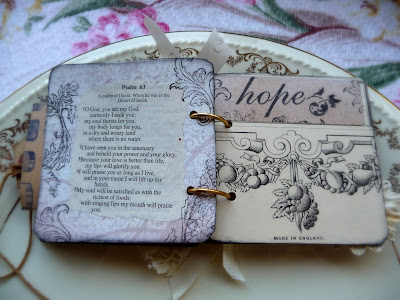 Psalm 63
A psalm of David. When he was in the
Desert of Judah.
O God, you are my God,
earnestly I seek you;
my soul thirsts for you,
my body longs for you,
in a dry and weary land
where there is no water.
I have seen you in the sanctuary
and beheld your power and your glory.
Because your love is better than life,
my lips will glorify you.
I will praise you as long as I live,
and in your name I will lift up my
hands.
My soul will be satisfied as with the
richest of foods;
with singing lips my mouth will praise
you.
hope
MADE IN ENGLAND.